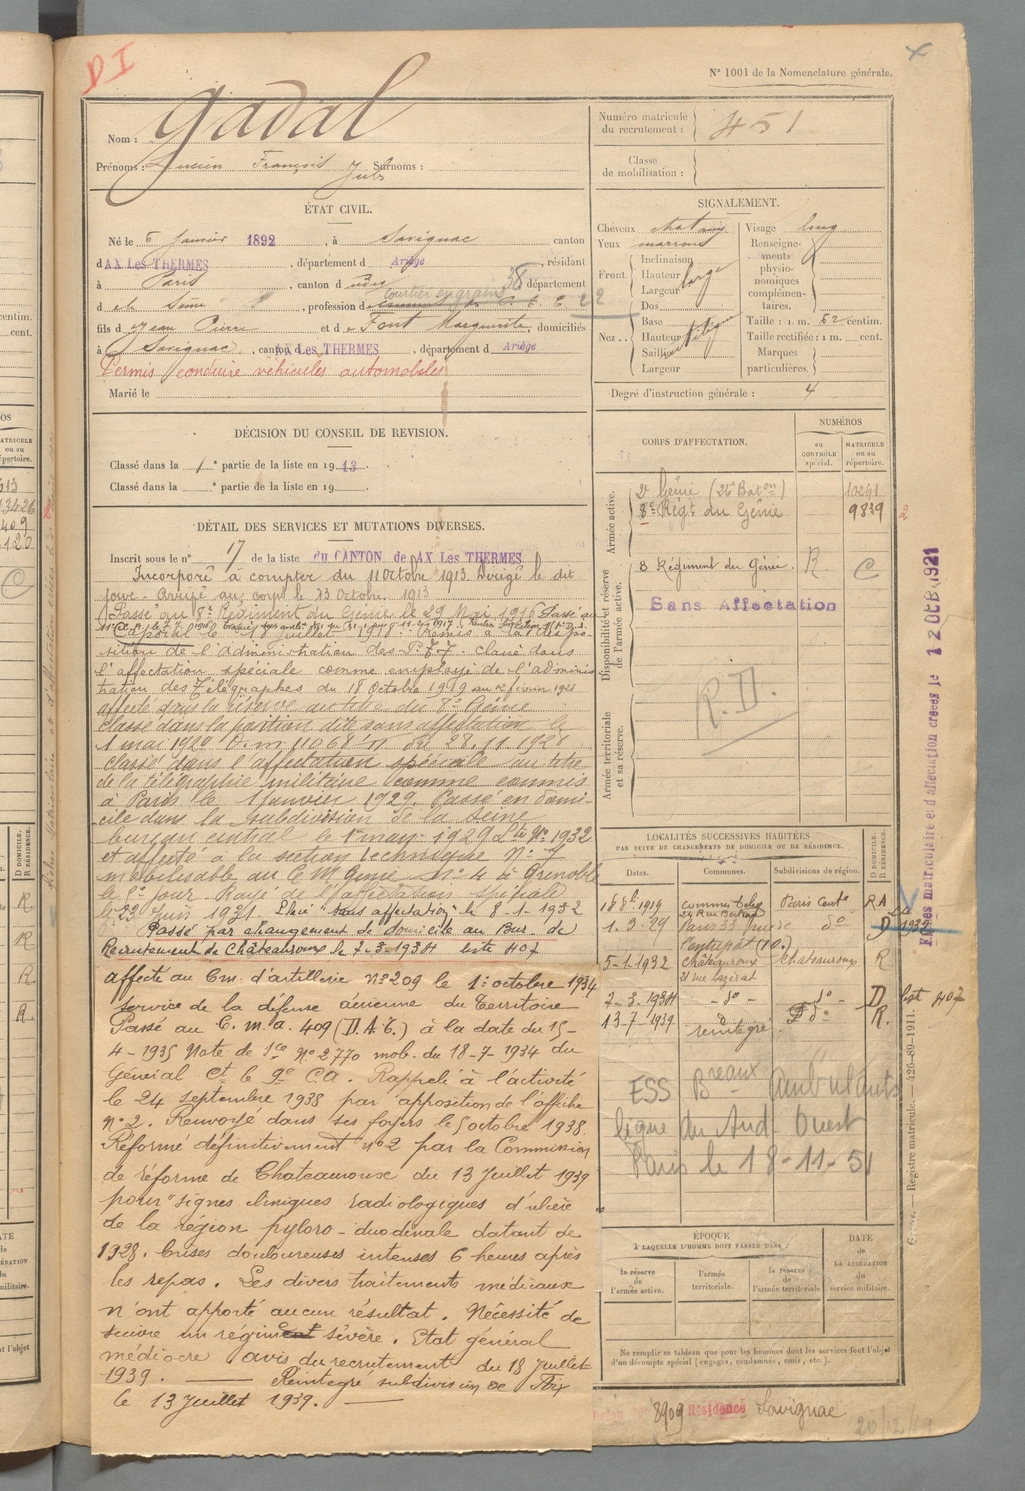 DI
N° 1001 de la Nomenclature générale.
Nom : Gadal
Prénoms : Lucien François Jules Surnoms :
Numéro matricule du recrutement : 451
Classe de mobilisation :
ÉTAT CIVIL.
Né le 6 Janvier 1892, à Savignac canton
d AX Les THERMES, département d Ariège, résidant
à Paris, canton d udu 38 département
courtier en grains
d ela Seine, profession de 22
fils d Jean Pierre et d e Font Marguerite, domiciliés
à Savignac, canton d AX Les THERMES, département d Ariège
Permis conduire véhicules automobiles
Marié le
SIGNALEMENT.
Cheveux chatains
Yeux marrons
Front. Inclinaison Hauteur Largeur Dos large
Nez.. Base Hauteur Saillie Largeur
Visage long
Renseignements physionomiques complémentaires.
Taille : 1 m. 52 centim.
Taille rectifiée : 1 m. cent.
Marques particulières.
Degré d'instruction générale : 4
DÉCISION DU CONSEIL DE REVISION.
Classé dans la 1e partie de la liste en 1913.
Classé dans la e partie de la liste en 19
DÉTAIL DES SERVICES ET MUTATIONS DIVERSES.
Inscrit sous le n° 17 de la liste du CANTON de AX Les THERMES
Incorporé à compter du 11 Octobre 1913 Dirigé le dit
jour. Arrivé au corps le 13 Octobre 1913
Passé au 8e Régiment du Génie le 29 Mai 1916 Passé au
Caporal le 18 juillet 1918. Remis à la dispo-
sition de l'administration des P.T.T. classé dans
l'affectation spéciale comme employé de l'adminis
tration des Télégraphes du 18 Octobre 1919
affecté sous la réserve au titre du 8e Génie
Classé dans la position dite sans affectation le
1 mai 1929 D.m 11068 du 28.11.1928
classé dans l'affectation spéciale au titre
de la télégraphie militaire comme commis
à Paris le 1 janvier 1929. Passé en domi-
cile dans la subdivision de la Seine
bureau central le 1er mars 1929
et affecté à la section technique N° 7
mobilisable au C M Génie N° 4 à Grenoble
le 1er jour. Rayé de l'affectation spéciale
le 23 juin 1931. Classé sans affectation le 8-1-1932
Passé par changement de domicile au Bur. de
Recrutement de Châteauroux le 7-3-1934 liste 407
affecté au Cm. d'artillerie n° 209 le 1er octobre 1934
service de la défense aérienne du Territoire
Passé au C.m.a. 409 (D.A.T.) à la date du 15-
4-1935 Note de sce N° 2770 mob. du 18-7-1934 du
Général Ct le 9e C.A. Rappelé à l'activité
le 24 septembre 1938 par apposition de l'affiche
n° 2. Renvoyé dans ses foyers le 5 octobre 1938.
Réformé définitivement n° 2 par la Commission
de réforme de Chateauroux du 13 Juillet 1939
pour "signes cliniques radiologiques d'ulcère
de la région pyloro-duodénale datant de
1928. Crises douloureuses intenses 6 heures après
les repas. Les divers traitements médicaux
n'ont apporté aucun résultat. Nécessité de
suivre un régime sévère. Etat général
médiocre avis du recrutement du 18 Juillet
1939. Réintégré subdivision de Foix
le 13 Juillet 1939.
CORPS D'AFFECTATION.
NUMÉROS
AU CONTRÔLE spécial.
MATRICULE ou au répertoire.
Armée active.
2e Génie (26e Baton) 10261
8e Régt du Génie 9839 2
Disponibilité et réserve de l'armée active.
8 Régiment du Génie. R C
Sans Affectation
Armée territoriale et sa réserve.
R.D.
LOCALITÉS SUCCESSIVES HABITÉES
PAR SUITE DE CHANGEMENTS DE DOMICILE OU DE RÉSIDENCE.
Dates. Communes. Subdivisions de région. D DOMICILE. R RÉSIDENCE.
1919 Paris Cent
1.3.29 Paris d° D
5-1-1932 Châteauroux Châteauroux R
7-3-1934 - d° - d° D liste 407
13-7-1939 réintégré d° R.
ESS Breaux Ambulants
ligne du Sud Ouest
Paris le 18-11-51
ÉPOQUE
À LAQUELLE L'HOMME DOIT PASSER DANS :
la réserve de l'armée active.
l'armée territoriale.
la réserve de l'armée territoriale
DATE de LA LIBÉRATION du service militaire.
Ne remplir ce tableau que pour les hommes dont les services font l'objet
d'un décompte spécial (engagés, condamnés, omis, etc.).
8909 Résidence Savignac
Fiches matriculaire et d'affectation créées le 12 OCT 1921
Registre matricule. — 426-89-1911.